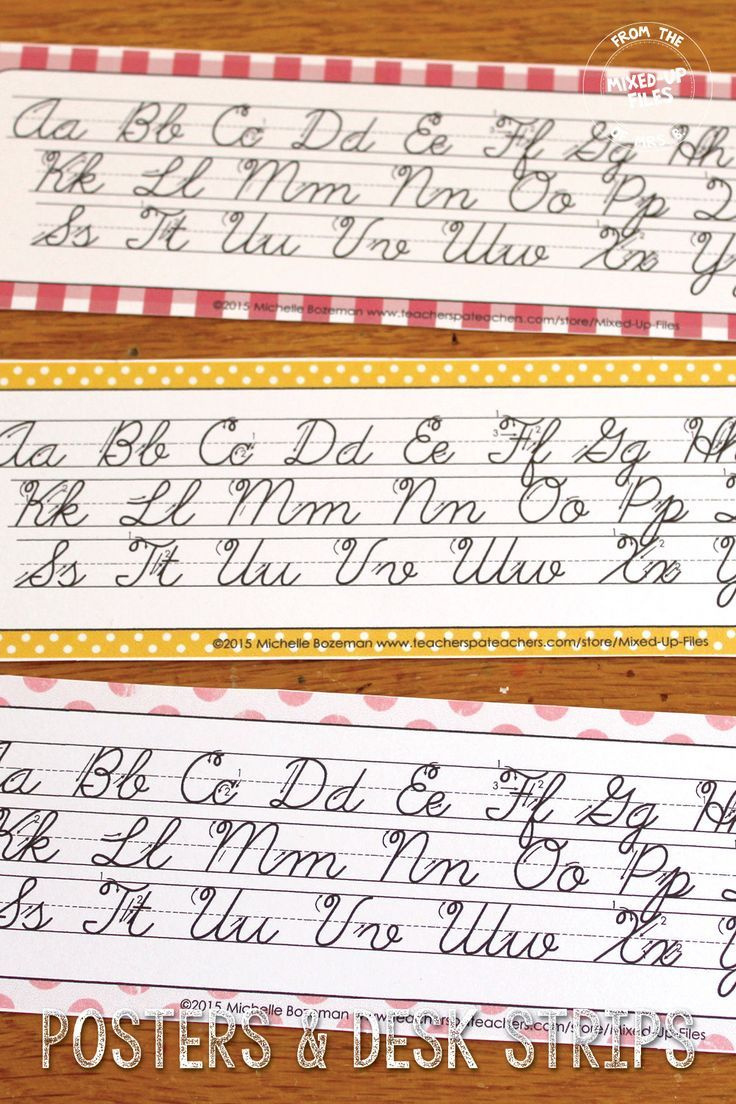 FROM THE
MIXED-UP
FILES
OF MRS. B.
Aa Bb Cc Dd Ee Ff Gg Hh
Kk Ll Mm Nn Oo Pp Q
Ss Tt Uu Vv Ww Xx Yy
©2015 Michelle Bozeman www.teacherspateachers.com/store/Mixed-Up-Files
Aa Bb Cc Dd Ee Ff Gg Hh
Kk Ll Mm Nn Oo Pp Q
Ss Tt Uu Vv Ww Xx Y
©2015 Michelle Bozeman www.teacherspateachers.com/store/Mixed-Up-Files
a Bb Cc Dd Ee Ff Gg Hh
Kk Ll Mm Nn Oo Pp
Ss Tt Uu Vv Ww Xx Y
©2015 Michelle Bozeman www.teacherspateachers.com/store/Mixed-Up-Files
POSTERS & DESK STRIPS